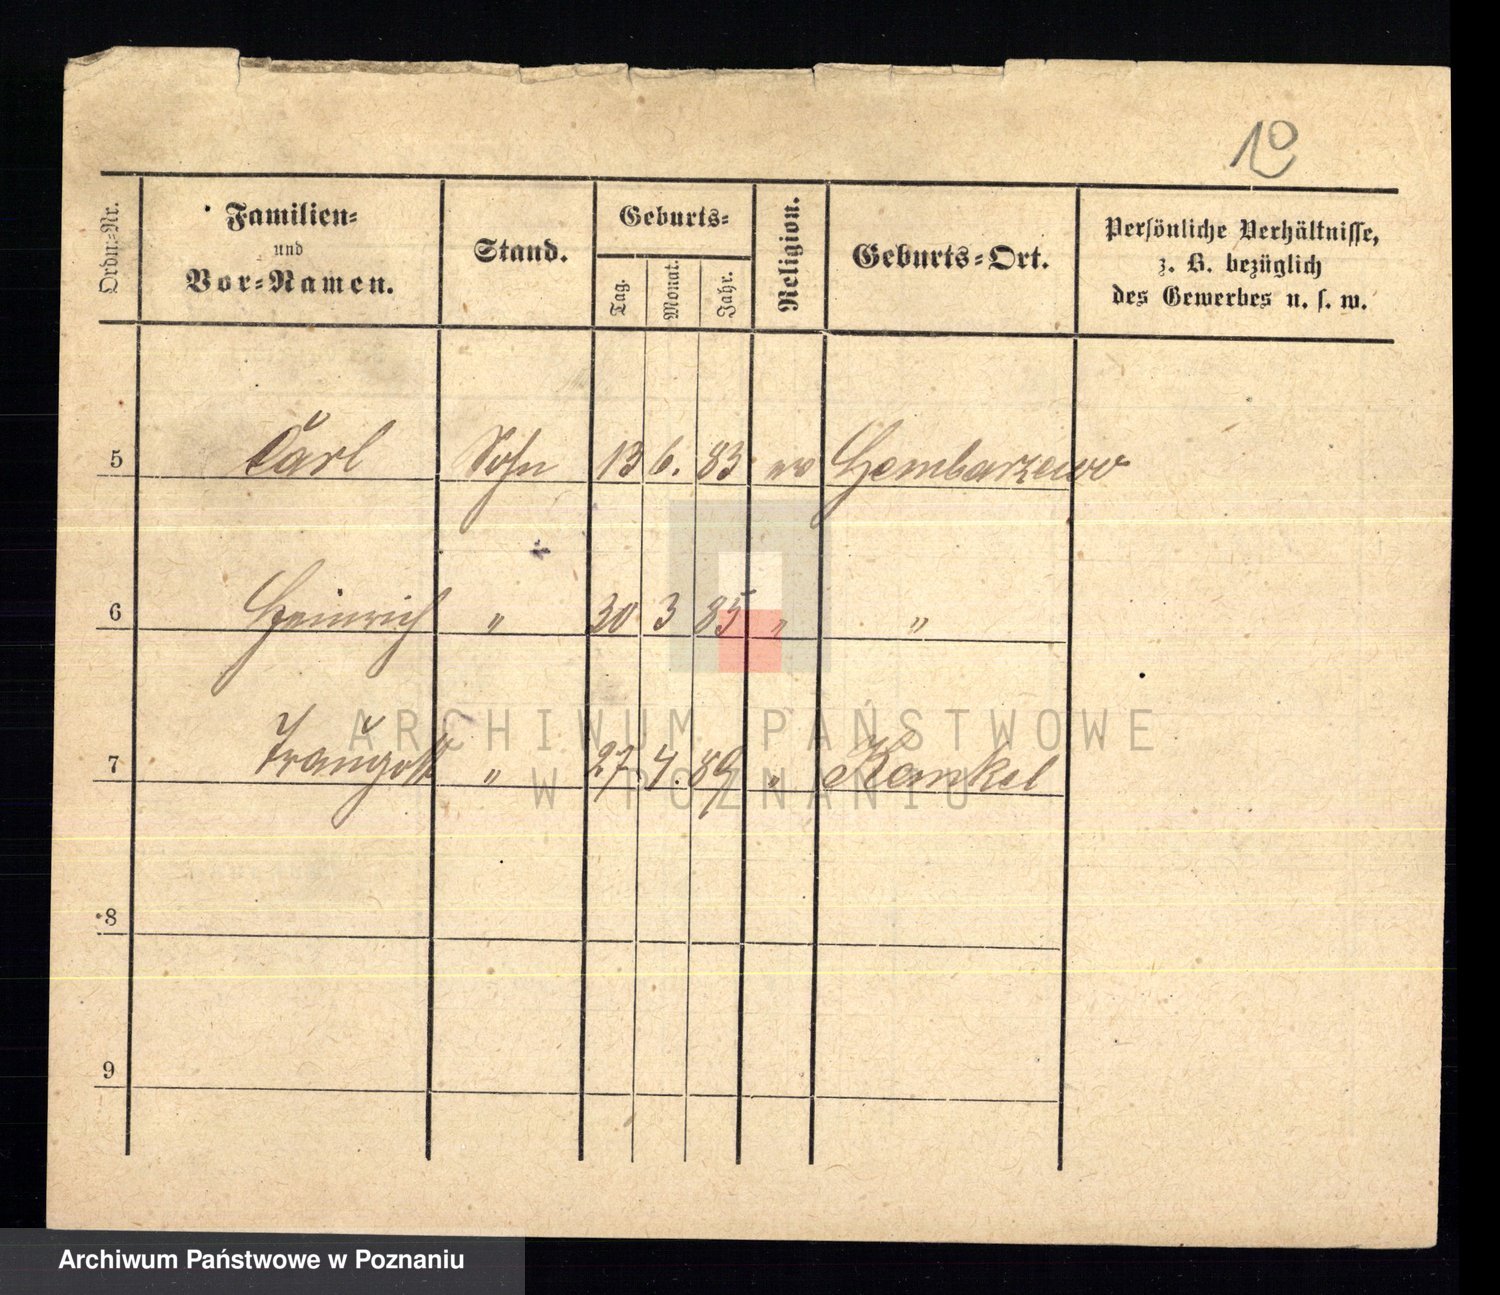 10
Ordn.-Nr.
Familien-
und
Vor-Namen.
Stand.
Geburts-
Tag.
Monat.
Jahr.
Religion.
Geburts-Ort.
Persönliche Verhältnisse,
z. B. bezüglich
des Gewerbes u. s. w.
5 Carl Sohn 13 6. 83 ev Gembarzewo
6 Heinrich " 30 3 85 " "
7 Traugott " 27. 4. 89 "
8
9
ARCHIWUM PAŃSTWOWE
W POZNANIU
Archiwum Państwowe w Poznaniu